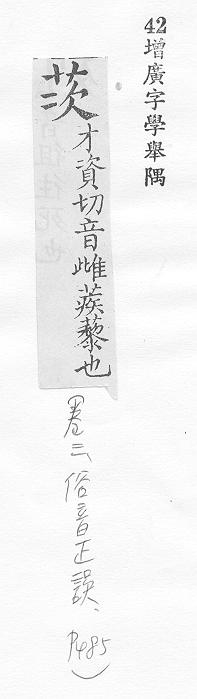 42增廣字學舉隅
茨才資切音雌蒺藜也
卷三、俗音正誤、P485)